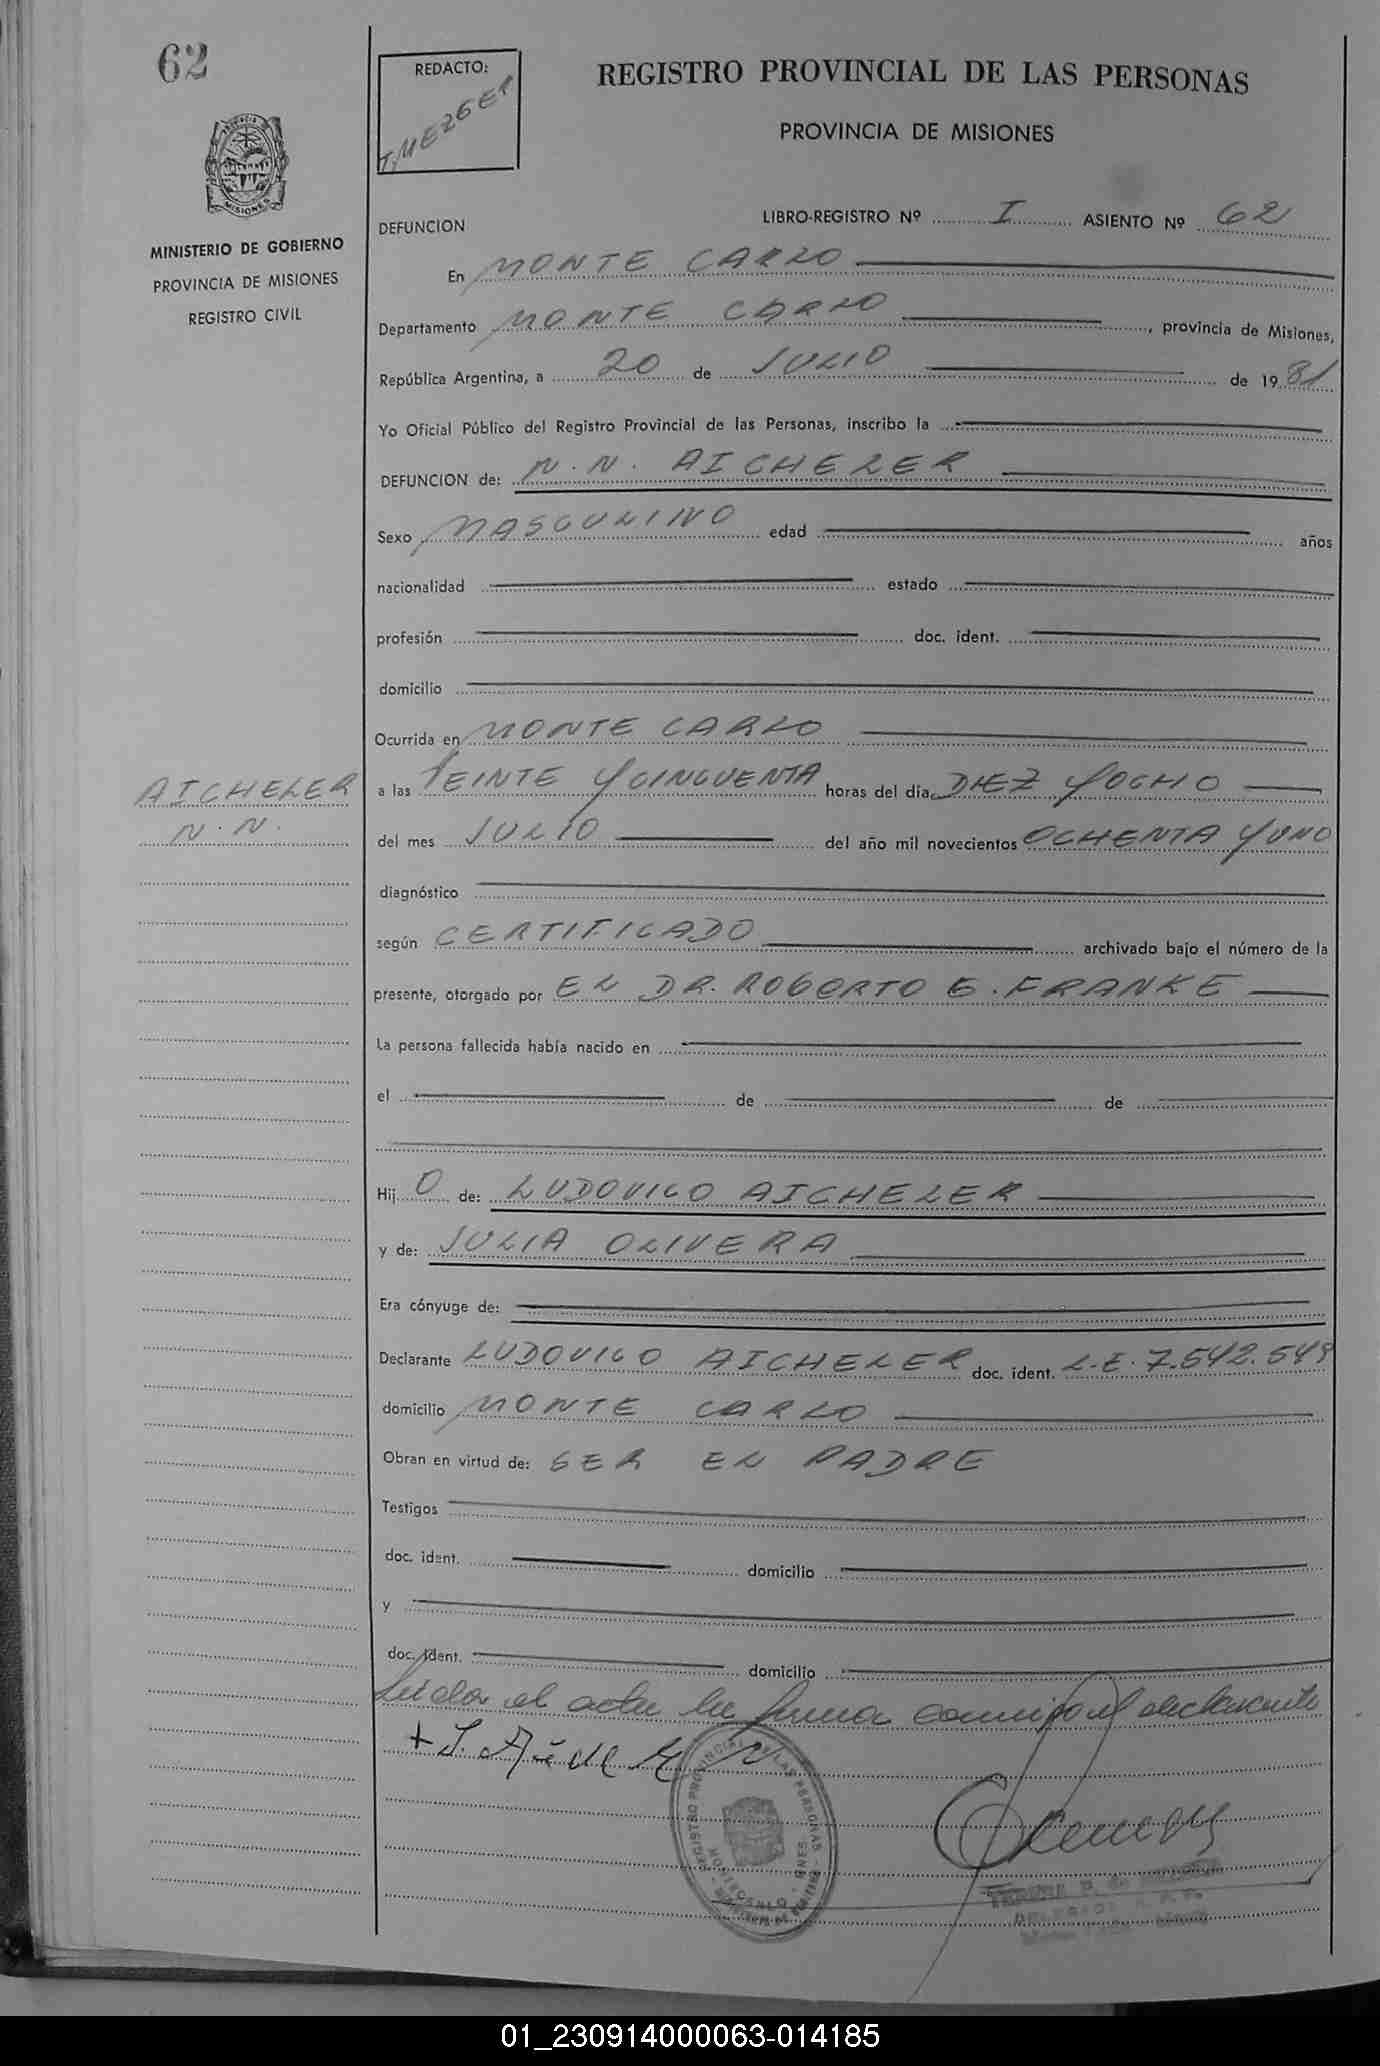 62
REDACTO:
T. MEZGER
REGISTRO PROVINCIAL DE LAS PERSONAS
PROVINCIA DE MISIONES
MISIONES
MINISTERIO DE GOBIERNO
PROVINCIA DE MISIONES
REGISTRO CIVIL
DEFUNCION
LIBRO-REGISTRO Nº I ASIENTO Nº 62
En MONTE CARLO
Departamento MONTE CARLO, provincia de Misiones,
República Argentina, a 20 de JULIO de 1981
Yo Oficial Público del Registro Provincial de las Personas, inscribo la
DEFUNCION de: N. N. AICHELER
Sexo MASCULINO edad años
nacionalidad estado
profesión doc. ident.
domicilio
Ocurrida en MONTE CARLO
AICHELER
N. N.
a las VEINTE Y CINCUENTA horas del día DIEZ Y OCHO
del mes JULIO del año mil novecientos OCHENTA Y UNO
diagnóstico
según CERTIFICADO archivado bajo el número de la
presente, otorgado por EL DR. ROBERTO E. FRANKE
La persona fallecida había nacido en
el de de
Hij O de: LUDOVICO AICHELER
y de: JULIA OLIVERA
Era cónyuge de:
Declarante LUDOVICO AICHELER doc. ident. L.E. 7.542.549
domicilio MONTE CARLO
Obran en virtud de: SER EL PADRE
Testigos
doc. ident. domicilio
y
doc. ident. domicilio
Leida el acta la firma conmigo el declarante
REGISTRO PROVINCIAL DE LAS PERSONAS
01_230914000063-014185